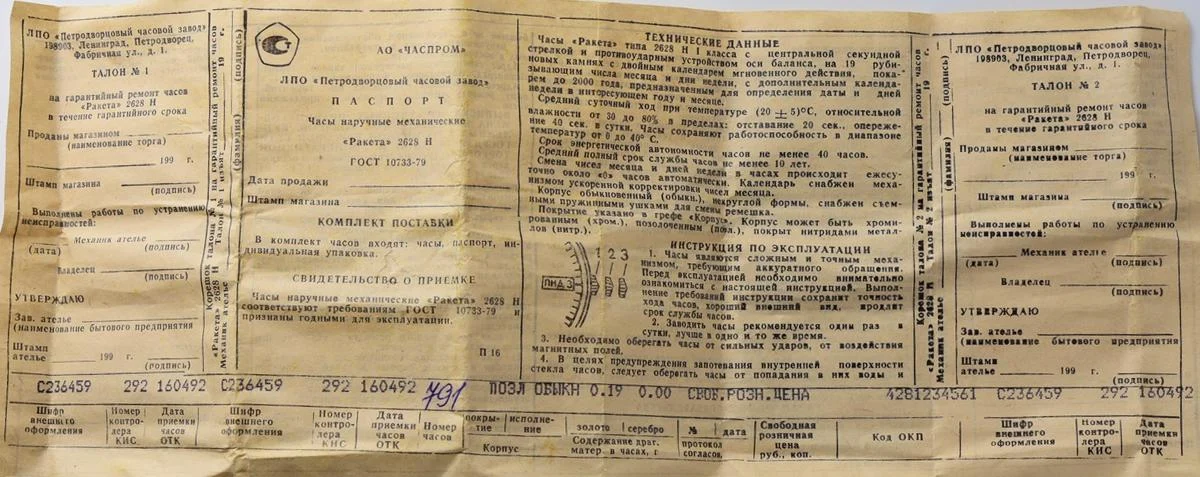 ЛПО «Петродворцовый часовой завод»
198903, Ленинград, Петродворец,
Фабричная ул., д. 1.
ТАЛОН № 1
на гарантийный ремонт часов
«Ракета» 2628 Н
в течение гарантийного срока
Проданы магазином
(наименование торга)
199 г.
Штамп магазина
(подпись)
Выполнены работы по устранению
неисправностей:
Механик ателье
(дата) (подпись)
Владелец
(подпись)
УТВЕРЖДАЮ
Зав. ателье
(наименование бытового предприятия
Штамп
ателье 199 г.
(подпись)
Корешок талона № 1 на гарантийный ремонт часов
«Ракета» 2628 Н Талон № 1 изъят 19 г.
Механик ателье
(фамилия) (подпись)
АО «ЧАСПРОМ»
ЛПО «Петродворцовый часовой завод»
ПАСПОРТ
Часы наручные механические
«Ракета» 2628 Н
ГОСТ 10733-79
Дата продажи
Штамп магазина
КОМПЛЕКТ ПОСТАВКИ
В комплект часов входят: часы, паспорт, ин-
дивидуальная упаковка.
СВИДЕТЕЛЬСТВО О ПРИЕМКЕ
Часы наручные механические «Ракета» 2628 Н
соответствуют требованиям ГОСТ 10733-79 и
признаны годными для эксплуатации.
П 16
ТЕХНИЧЕСКИЕ ДАННЫЕ
Часы «Ракета» типа 2628 Н I класса с центральной секундной
стрелкой и противоударным устройством оси баланса, на 19 руби-
новых камнях с двойным календарем мгновенного действия, пока-
зывающим числа месяца и дни недели, с дополнительным календа-
рем до 2000 года, предназначенным для определения даты и дней
недели в интересующем году и месяце.
Средний суточный ход при температуре (20 ± 5)°С, относительной
влажности от 30 до 80% в пределах: отставание 20 сек., опереже-
ние 40 сек. в сутки. Часы сохраняют работоспособность в диапазоне
температур от 0 до 40° С.
Срок энергетической автономности часов не менее 40 часов.
Средний полный срок службы часов не менее 10 лет.
Смена чисел месяца и дней недели в часах происходит ежесу-
точно около «0» часов автоматически. Календарь снабжен меха-
низмом ускоренной корректировки чисел месяца.
Корпус обыкновенный (обыкн.), некруглой формы, снабжен съем-
ными пружинными ушками для смены ремешка.
Покрытие указано в графе «Корпус». Корпус может быть хроми-
рованным (хром.), позолоченным (позл.), покрыт нитридами метал-
лов (нитр.).
1 2 3
ПНД 3
ИНСТРУКЦИЯ ПО ЭКСПЛУАТАЦИИ
1. Часы являются сложным и точным меха-
низмом, требующим аккуратного обращения.
Перед эксплуатацией необходимо внимательно
ознакомиться с настоящей инструкцией. Выпол-
нение требований инструкции сохранит точность
хода часов, хороший внешний вид, продлит
срок службы часов.
2. Заводить часы рекомендуется один раз в
сутки, лучше в одно и то же время.
3. Необходимо оберегать часы от сильных ударов, от воздействия
магнитных полей.
4. В целях предупреждения запотевания внутренней поверхности
стекла часов, следует оберегать часы от попадания в них воды и
Корешок талона № 2 на гарантийный ремонт часов
«Ракета» 2628 Н Талон № 2 изъят 19 г.
Механик ателье
(фамилия) (подпись)
ЛПО «Петродворцовый часовой завод»
198903, Ленинград, Петродворец,
Фабричная ул., д. 1.
ТАЛОН № 2
на гарантийный ремонт часов
«Ракета» 2628 Н
в течение гарантийного срока
Проданы магазином
(наименование торга)
199 г.
Штамп магазина
(подпись)
Выполнены работы по устранению
неисправностей:
Механик ателье
(дата) (подпись)
Владелец
(подпись)
УТВЕРЖДАЮ
Зав. ателье
(наименование бытового предприятия
Штамп
ателье 199 г.
(подпись)
С236459 292 160492 С236459 292 160492 791 ПОЗЛ ОБЫКН 0.19 0.00 СВОБ.РОЗН.ЦЕНА 4281234561 С236459 292 160492
Шифр внешнего оформления
Номер контро-лера КИС
Дата приемки часов ОТК
Шифр внешнего оформления
Номер контро-лера КИС
Дата приемки часов ОТК
Номер часов
покры-тие
исполне-ние
Корпус
золото серебро
Содержание драг. матер. в часах, г
№ дата
протокол согласов.
Свободная розничная цена руб., коп.
Код ОКП
Шифр внешнего оформления
Номер контро-лера КИС
Дата приемки часов ОТК